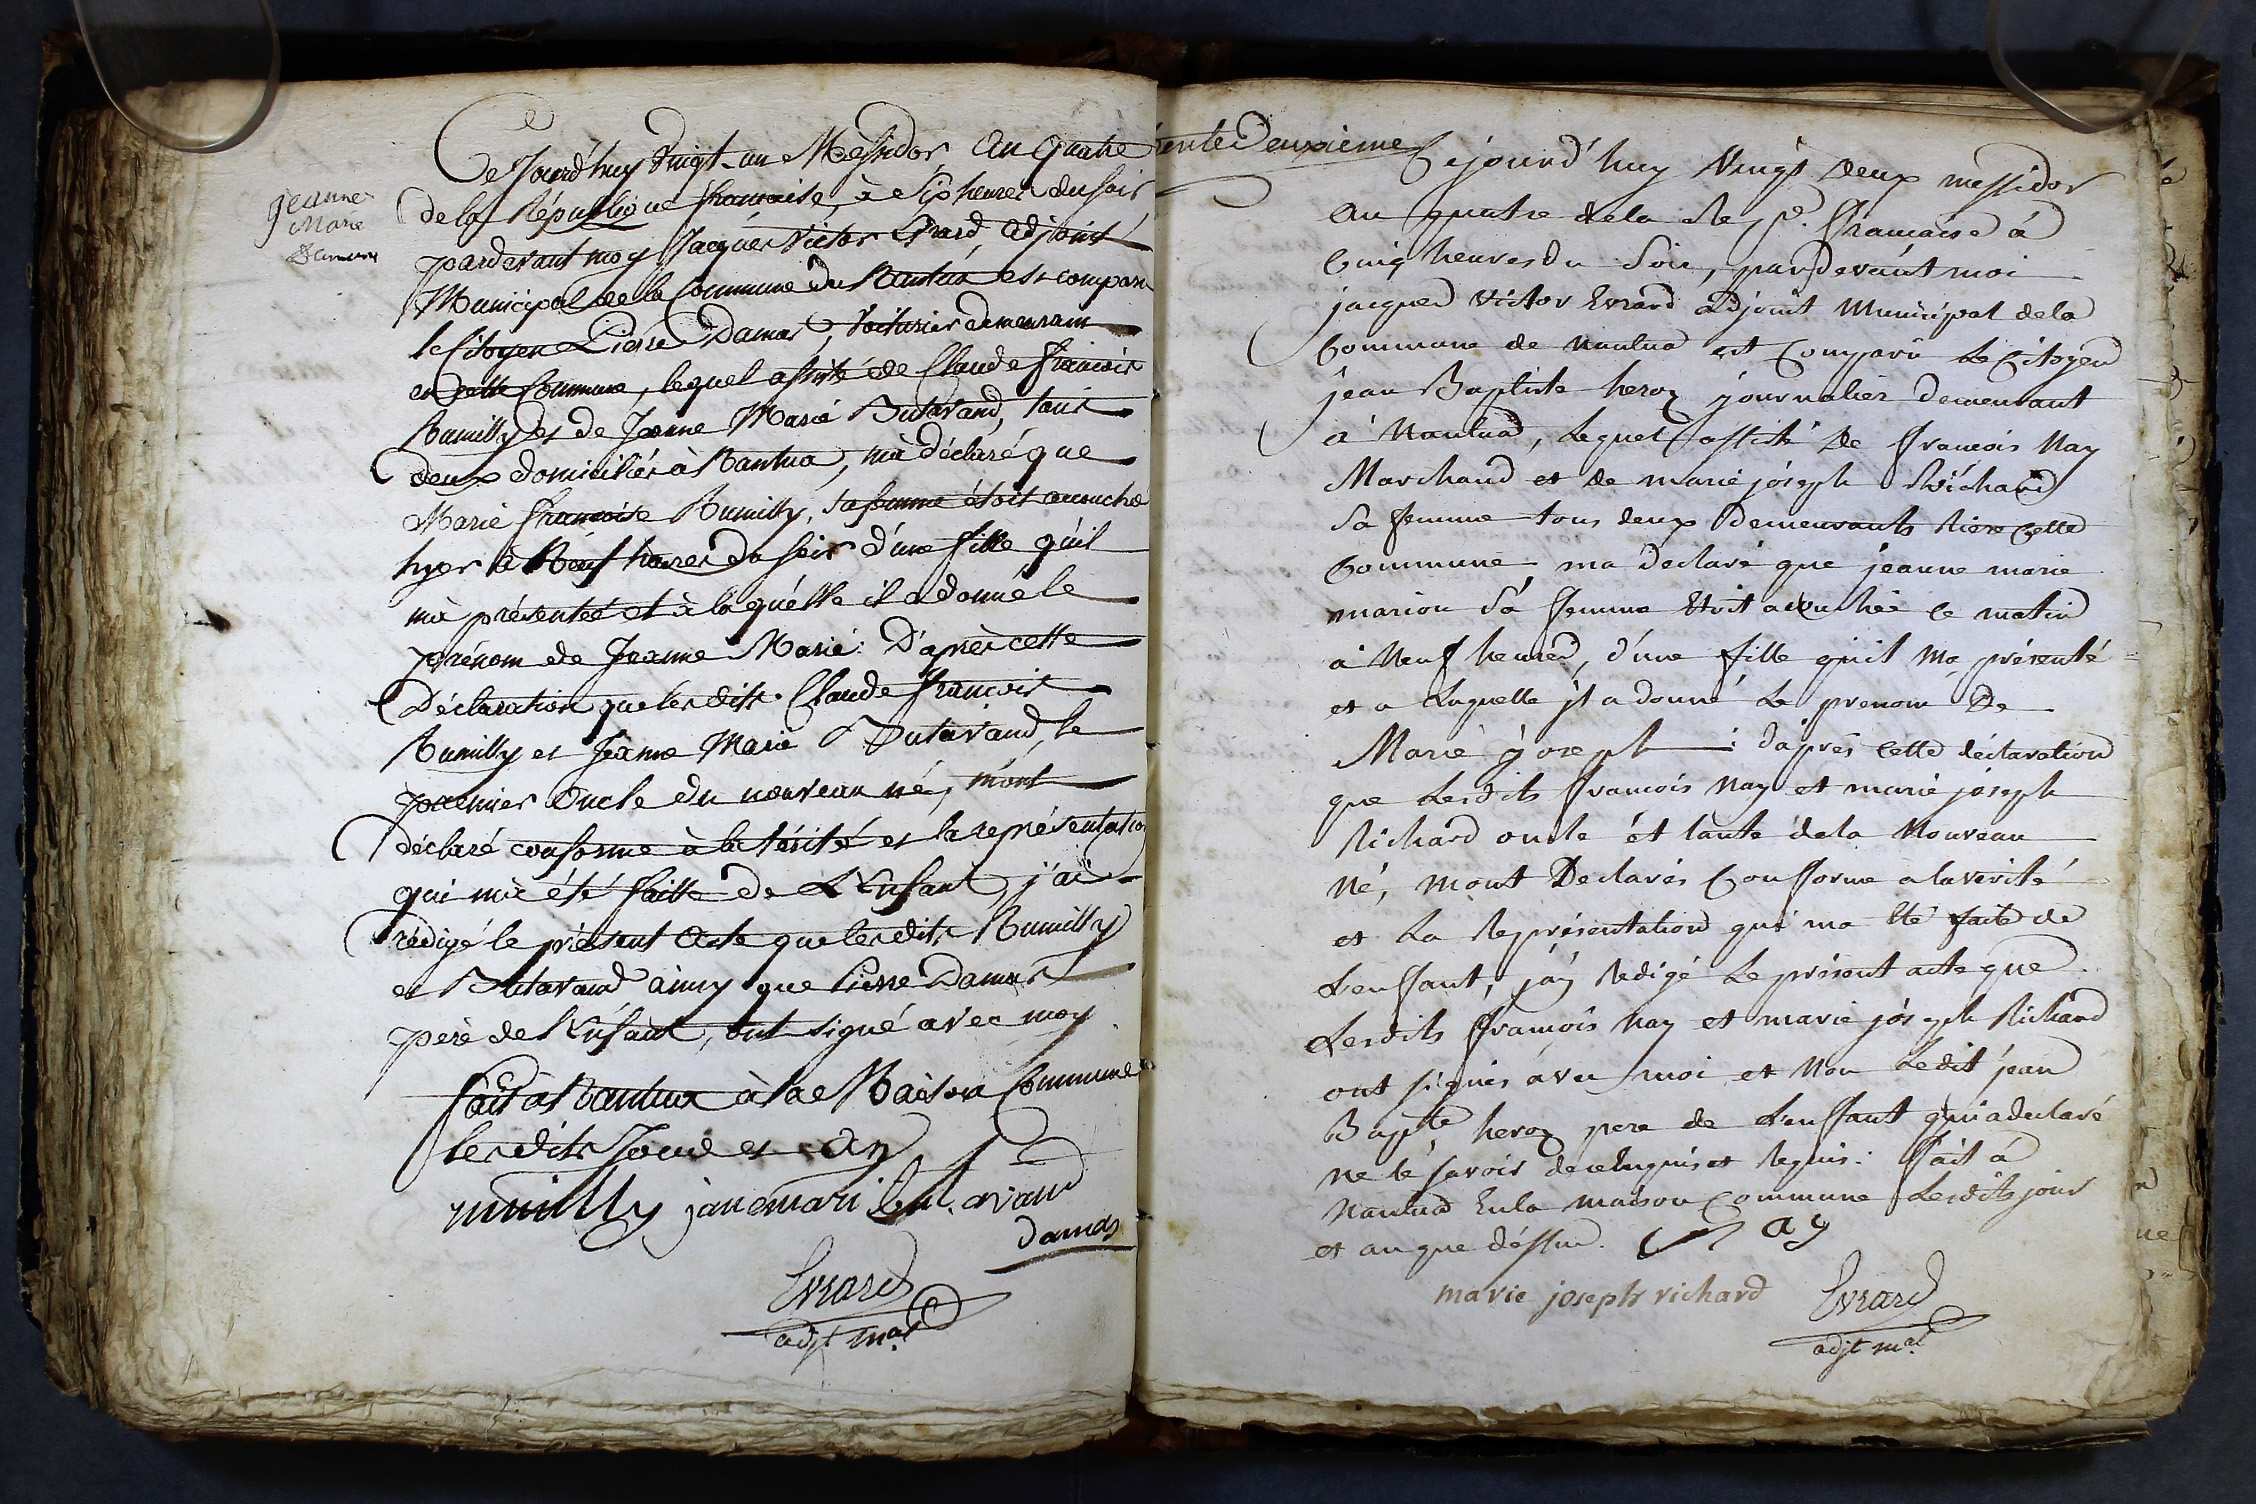 jeanne
Marie
Ce Jourd'huy Vingt-un Messidor, An Quatre
de la République française, à Six heures du soir
pardevant moy Jacques Victor Evrard, adjoint
Municipal de la Commune de Nantua est comparu
le Citoyen Pierre Damas, Voiturier demeurant
en cette Commune, lequel assisté de Claude françois
Rumilly et de Jeanne Marie Butavand, tous
deux domiciliés à Nantua, m'a déclaré que
Marie françoise Rumilly, sa femme étoit accouchée
hyer à Neuf heures du soir d'une fille qu'il
m'a présentée et à laquélle il a donné le
prénom de Jeanne Marie: D'après cette
Déclaration que lesdits Claude françois
Rumilly et Jeanne Marie Butavand, le
premier Oncle du nouveau né, m'ont
déclaré conforme à la Vérité et la représentation
qui m'a été faitte de L'Enfant, j'ai
rédigé le présent Acte que lesdits Rumilly
et Butavand ainsy que Pierre Damas
père de l'Enfant, ont signé avec moy
fait à Nantua à la Maison Commune
lesdits Jour et An
rumilly janemari butavand
damas
Evrard
adjt mal
trente Deuxieme
Cejourd'huy Vingt deux messidor
an quatre de la Rep. francaise à
Cinq heures du Soir, pardevant moi
jacques Victor Evrard adjoint Municipal de la
Commune de nantua est Comparu Le Citoyen
jean Baptiste heroz journalier demeurant
à Nantua, Lequel assisté de francois Nay
Marchand et de marie joseph Richard
Sa femme tous deux demeurants riere cette
Commune ma déclaré que jeanne marie
marion sa femme étoit acouchée ce matin
à Neuf heures, d'une fille quil ma présenté
et a Laquelle jl a donné Le prenom De
Marie joseph : d'après cette déclaration
que Lesdits francois Nay et marie joseph
Richard oncle et tante de la Nouveau
né, mont Declarés Conforme a la verité
et La Représentation qui ma été faite de
Lenffant, j'ay Redigé Le présent acte que
Lesdits francois Nay et marie joseph Richard
ont signés avec moi et Non Ledit jean
Bapte heroz pere de Lenffant qui a declaré
ne le savoir de ce enquis et Requis: fait à
Nantua En la maison Commune Lesdits jour
et an que dessus. ay
marie joseph richard Evrard
adjt mal